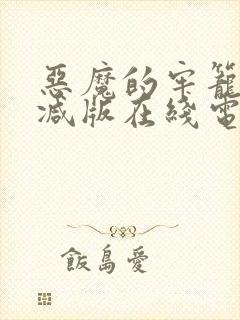 惡魔的牢籠
減版在綫電
飯島愛